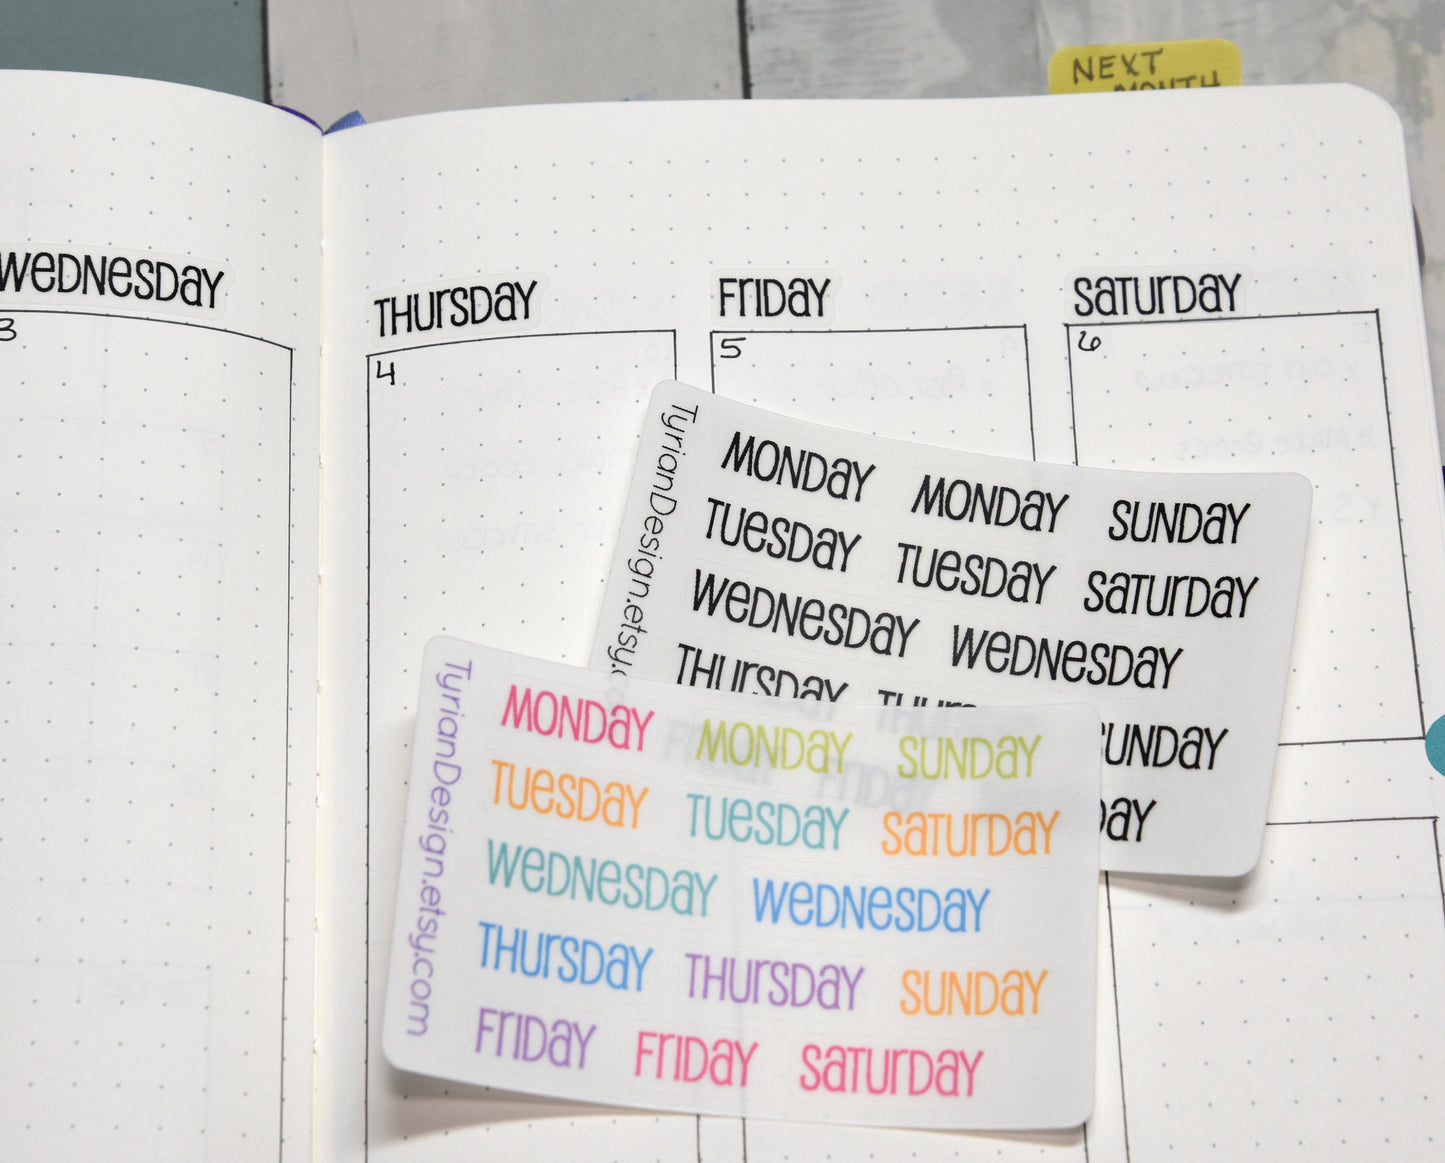 NEXT
MONTH
WEDNESDAY
THURSDAY
FRIDAY
SATURDAY
3
4
5
6
TyrianDesign.etsy.c
MONDAY MONDAY SUNDAY
TUESDAY TUESDAY SATURDAY
WEDNESDAY WEDNESDAY
THURSDAY THURSDAY SUNDAY
FRIDAY FRIDAY
DAY
TyrianDesign.etsy.com
MONDAY MONDAY SUNDAY
TUESDAY TUESDAY SATURDAY
WEDNESDAY WEDNESDAY
THURSDAY THURSDAY SUNDAY
FRIDAY FRIDAY SATURDAY